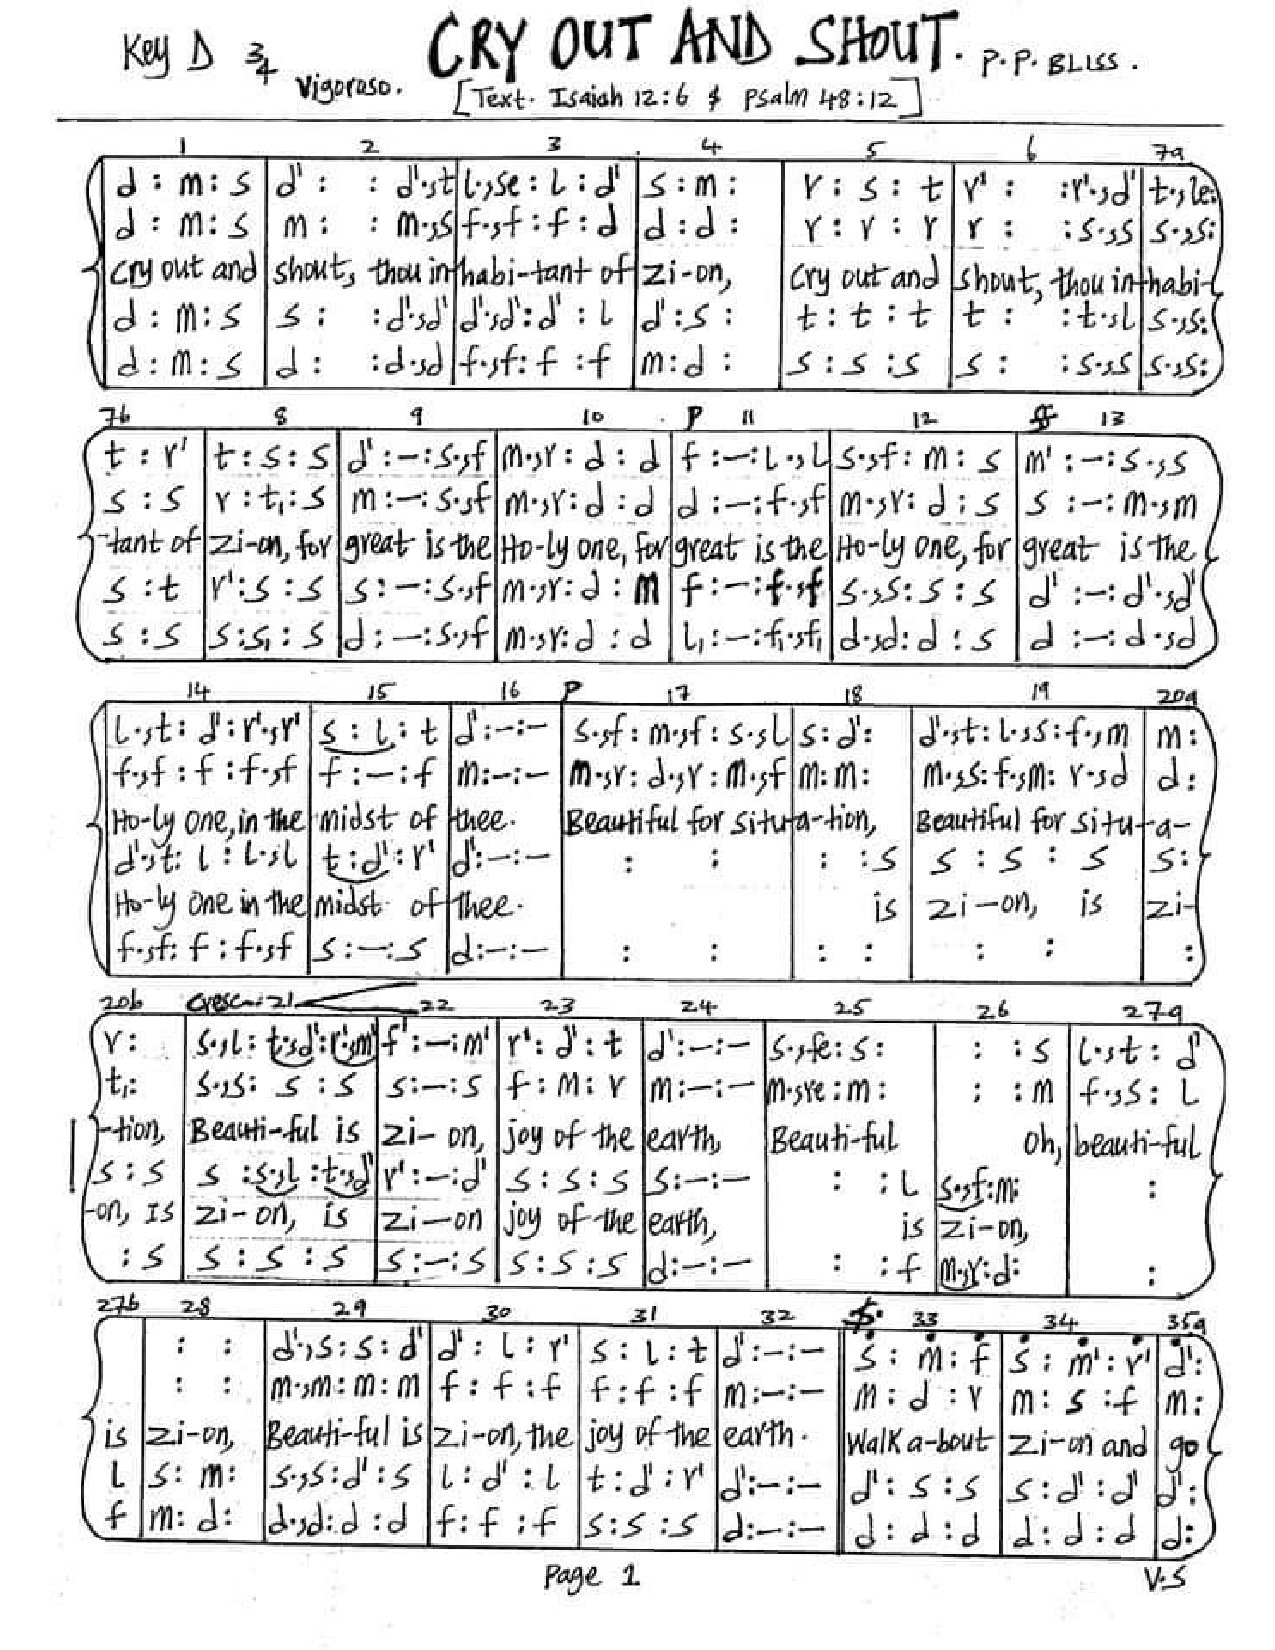 Key D 3/4 CRY OUT AND SHOUT. P.P. BLISS.
Vigoroso. [Text. Isaiah 12:6 & Psalm 48:12]
1 2 3 4 5 6 7a
d : m : s | d' : : d'.,t | l.,se : l : d' | s : m : | r : s : t | r' : : r'.,d' | t.,le :
d : m : s | m : : m.,s | f.,f : f : d | d : d : | r : r : r | r : : s.,s | s.,s :
Cry out and | shout, thou in-|habi-tant of | zi-on, | Cry out and | shout, thou in-|habi-
d : m : s | s : : d'.,d' | d'.,d' : d' : l | d' : s : | t : t : t | t : : t.,l | s.,s :
d : m : s | d : : d.,d | f.,f : f : f | m : d : | s : s : s | s : : s.,s | s.,s :
7b 8 9 10 p 11 12 ff 13
t : r' | t : s : s | d' : — : s.,f | m.,r : d : d | f : — : l.,l | s.,f : m : s | m' : — : s.,s
s : s | r : t₁ : s | m : — : s.,f | m.,r : d : d | d : — : f.,f | m.,r : d : s | s : — : m.,m
-tant of | zi-on, for | great is the | Ho-ly one, for | great is the | Ho-ly one, for | great is the
s : t | r' : s : s | s : — : s.,f | m.,r : d : m | f : — : f.,f | s.,s : s : s | d' : — : d'.,d'
s : s | s : s₁ : s | d : — : s.,f | m.,r : d : d | l₁ : — : f₁.,f₁ | d.,d : d : s | d : — : d.,d
14 15 16 p 17 18 19 20a
l.,t : d' : r'.,r' | s : l : t | d' : — : — | s.,f : m.,f : s.,l | s : d' : | d'.,t : l.,s : f.,m | m :
f.,f : f : f.,f | f : — : f | m : — : — | m.,r : d.,r : m.,f | m : m : | m.,s : f.,m : r.,d | d :
Ho-ly one, in the | midst of | thee. | Beautiful for situ-|a-tion, | Beautiful for situ-|a-
d'.,t : l : l.,l | t : d' : r' | d' : — : — | : : | : : s | s : s : s | s :
Ho-ly one in the | midst of | thee. | is | zi-on, is | zi-
f.,f : f : f.,f | s : — : s | d : — : — | : : | : : | : : | :
20b Cresc. 21 22 23 24 25 26 27a
r : | s.,l : t.,d' : r'.,m' | f' : — : m' | r' : d' : t | d' : — : — | s.,fe : s : | : : s | l.,t : d'
t₁ : | s.,s : s : s | s : — : s | f : m : r | m : — : — | m.,re : m : | : : m | f.,s : l
-tion, | Beauti-ful is | zi-on, | joy of the | earth, | Beauti-ful | Oh, | beauti-ful
s : s | s : s.,l : t.,d' | r' : — : d' | s : s : s | s : — : — | : : l | s.,f : m : | :
-on, is | zi-on, is | zi-on | joy of the | earth, | is | zi-on,
: s | s : s : s | s : — : s | s : s : s | d : — : — | : : f | m.,r : d : | :
27b 28 29 30 31 32 𝄋 33 34 35a
: : | d'.,s : s : d' | d' : l : r' | s : l : t | d' : — : — | s : m : f | s : m' : r' | d' :
: : | m.,m : m : m | f : f : f | f : f : f | m : — : — | m : d : r | m : s : f | m :
is | zi-on, | Beauti-ful is | zi-on, the | joy of the | earth. | Walk a-bout | zi-on and | go
l | s : m : | s.,s : d' : s | l : d' : l | t : d' : r' | d' : — : — | d' : s : s | s : d' : d' | d' :
f | m : d : | d.,d : d : d | f : f : f | s : s : s | d : — : — | d : d : d | d : d : d | d :
Page 1 V.S